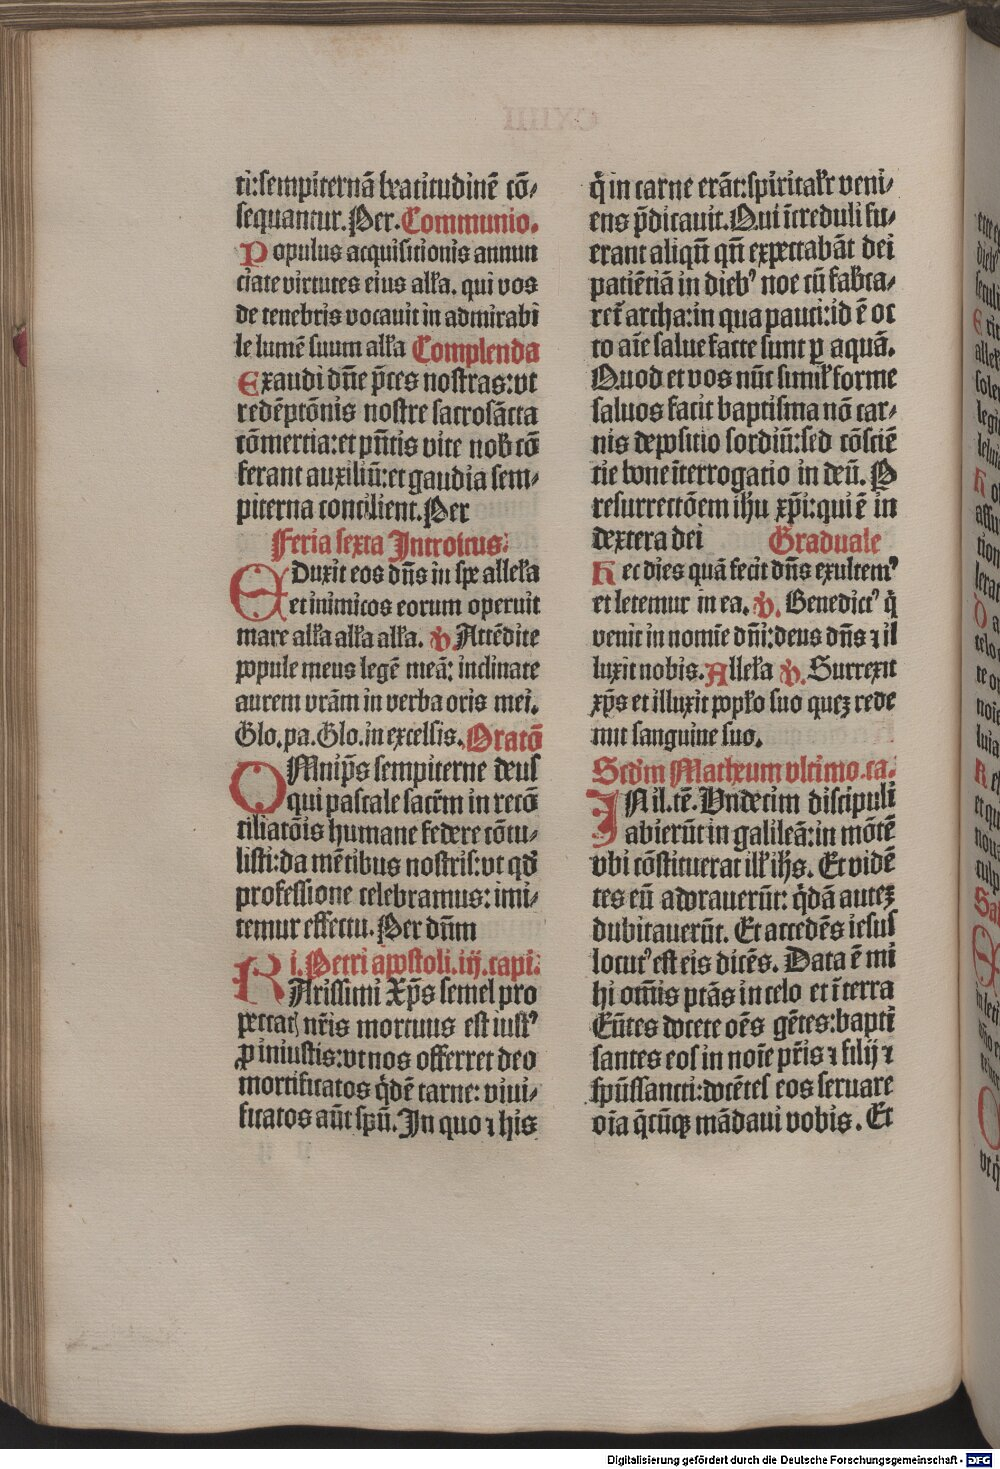 ti:sempiternā beatitudinē cō⸗
sequantur. Per. Communio.
Populus acquisitionis annun
ciate virtutes eius alľa. qui vos
de tenebris vocavit in admirabi
le lumē suum alľa Complenda
Exaudi dn̄e p̄ces nostras: vt
redēptōnis nostre sacrosācta
cōmertia: et pn̄tis vite nob̄ cō
ferant auxiliū: et gaudia sem⸗
piterna concilient. Per
Feria sexta Introitus.
EDuxit eos dn̄s in spe alleľa
et inimicos eorum operuit
mare alľa alľa alľa. ℣. Attēdite
popule meus legē meā: inclinate
aurem vrām in verba oris mei.
Glo. pa. Glo. in excelsis. Oratō
OMnip̄s sempiterne deus
qui pascale sacr̄m in recō
ciliatōis humane federe cōtu⸗
listi: da mētibus nostris: vt qď
professione celebramus: imi⸗
temur effectu. Per dn̄m
i. Petri apostoli. iij. capi.
KArissimi Xp̄s semel pro
peccatꝭ nr̄is mortuus est iustꝰ
ꝓ iniustis: vt nos offerret deo
mortificatos q̇dē carne: vivi⸗
ficatos aūt spū. In quo ⁊ his
q̇ in carne erāt: spiritaľr veni⸗
ens p̄dicauit. Qui īcreduli fu⸗
erant aliqn̄ qn̄ expectabāt dei
patiētiā in diebꝰ noe cū fab̄ca⸗
ret̄ archa: in qua pauci: id ē oc
to aīe salue facte sunt ꝑ aquā.
Quod et vos nūc similꝭ forme
saluos facit baptisma nō car⸗
nis depositio sordiū: sed cōsciē
tie bone īterrogatio in deū. P
resurrectōem ihu xp̄i: qui ē in
dextera dei Graduale
Hec dies quā fecit dn̄s exultemꝰ
et letemur in ea. ℣. Benedictꝰ q̇
venit in nomīe dn̄i: deus dn̄s ⁊ il
luxit nobis. Alleľa ℣. Surrexit
xp̄s et illuxit popľo suo quez rede
mit sanguine suo.
Scďm Matheum vltimo. ca.
IN il. tē. Vndecim discipuli
abierūt in galileā: in mōtē
vbi cōstituerat ilľ ih̄s. Et vidē
tes eū adorauerūt: q̇dā autez
dubitauerūt. Et accedēs iesus
locutꝰ est eis dicēs. Data ē mi
hi om̄is ptās in celo et ī terra
Eūtes docete oēs gētes: bapti
santes eos in noīe pr̄is ⁊ filij ⁊
spūssancti: docētes eos seruare
oīa q̄cūqꝫ mādaui vobis. Et
Digitalisierung gefördert durch die Deutsche Forschungsgemeinschaft - DFG